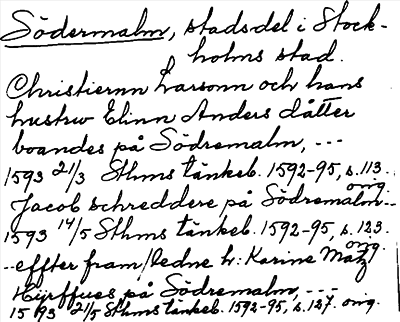 Södermalm, stadsdel i Stock-
holms stad.
Christiernn Larsonn och hans
hustrw Elinn Anders dåtter
boandes på Södremalm, ---
1593 21/3 Sthms tänkeb. 1592-95, s. 113.
orig.
Jacob schreddere på Södremalm --
1593 14/5 Sthms tänkeb. 1592-95, s. 123.
orig.
-- effter fram/ledne h: Karine Matz
på Södremalm, ---
1593 2/5 Sthms tänkeb. 1592-95, s. 127. orig.